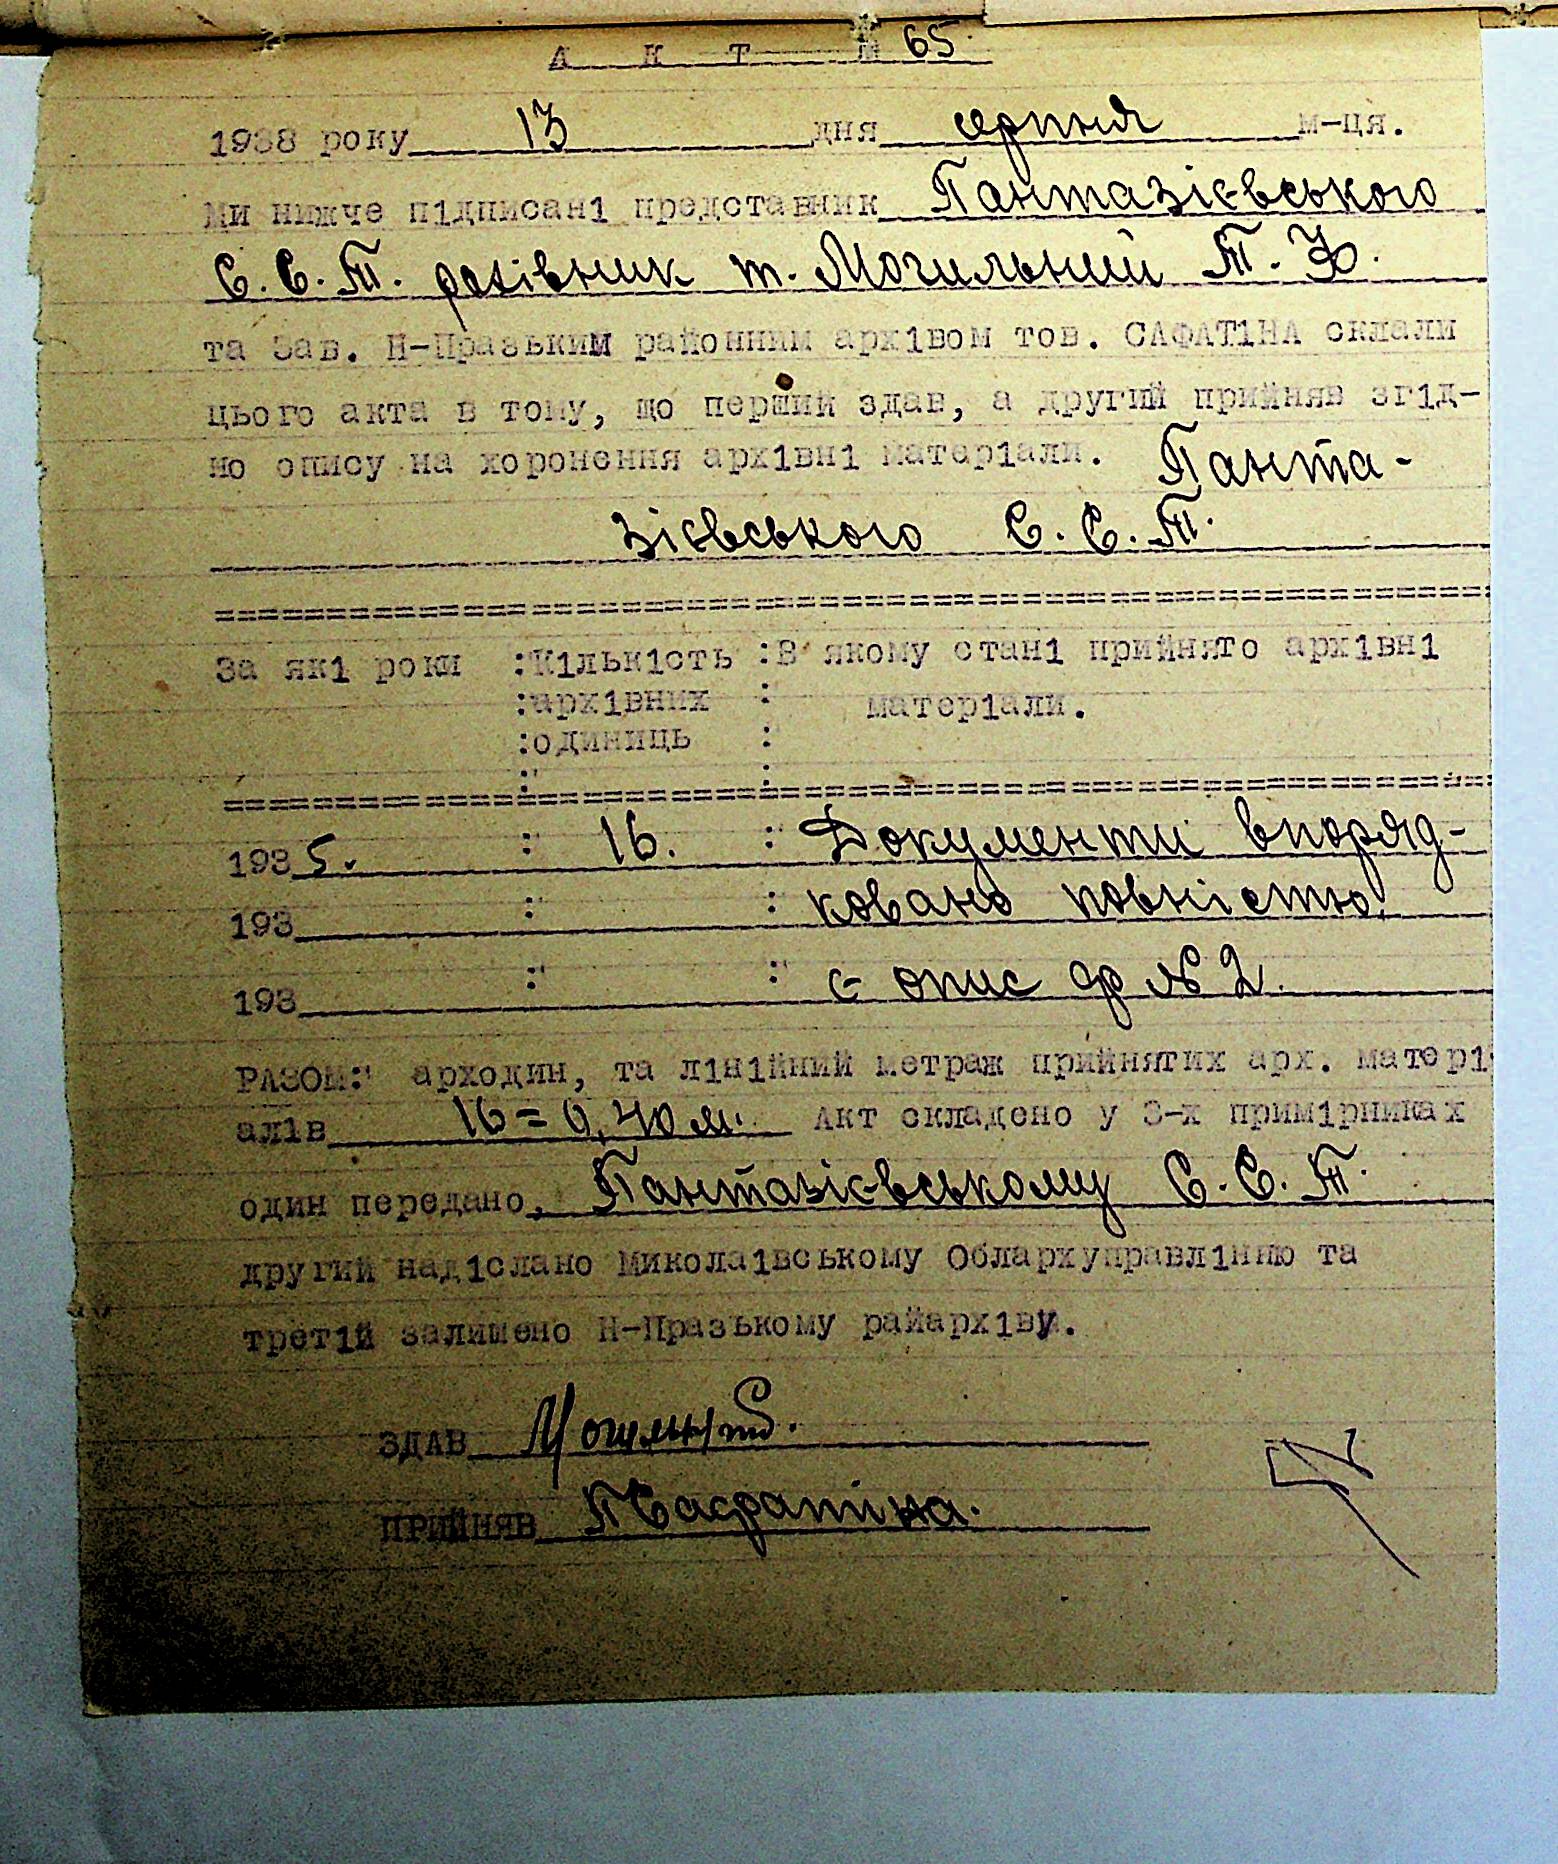 А К Т № 65
1938 року 13 дня серпня м-ця.
Ми нижче підписані представник Пантазієвського
С.С.Т. рахівник т. Могильний Т. Ф.
та Зав. Н-Празьким районним архівом тов. САФАТІНА склали
цього акта в тому, що перший здав, а другий прийняв згід-
но опису на хоронення архівні матеріали. Панта-
зієвського С.С.Т.
За які роки :Кількість :В якому стані прийнято архівні
:архівних : матеріали.
:одиниць :
1935. : 16. : Документи впоряд-
193 : : ковано повністю,
193 : : є опис ф № 2.
РАЗОМ: арходин, та лінійний метраж прийнятих арх. матері
алів 16 = 0,40 м. Акт складено у 3-х примірниках
один передано, Пантазієвському С.С.Т.
другий надіслано Миколаівському Облархуправлінню та
третій залишено Н-Празькому райархіву.
ЗДАВ Могильний.
ПРИЙНЯВ ТСафатіна.